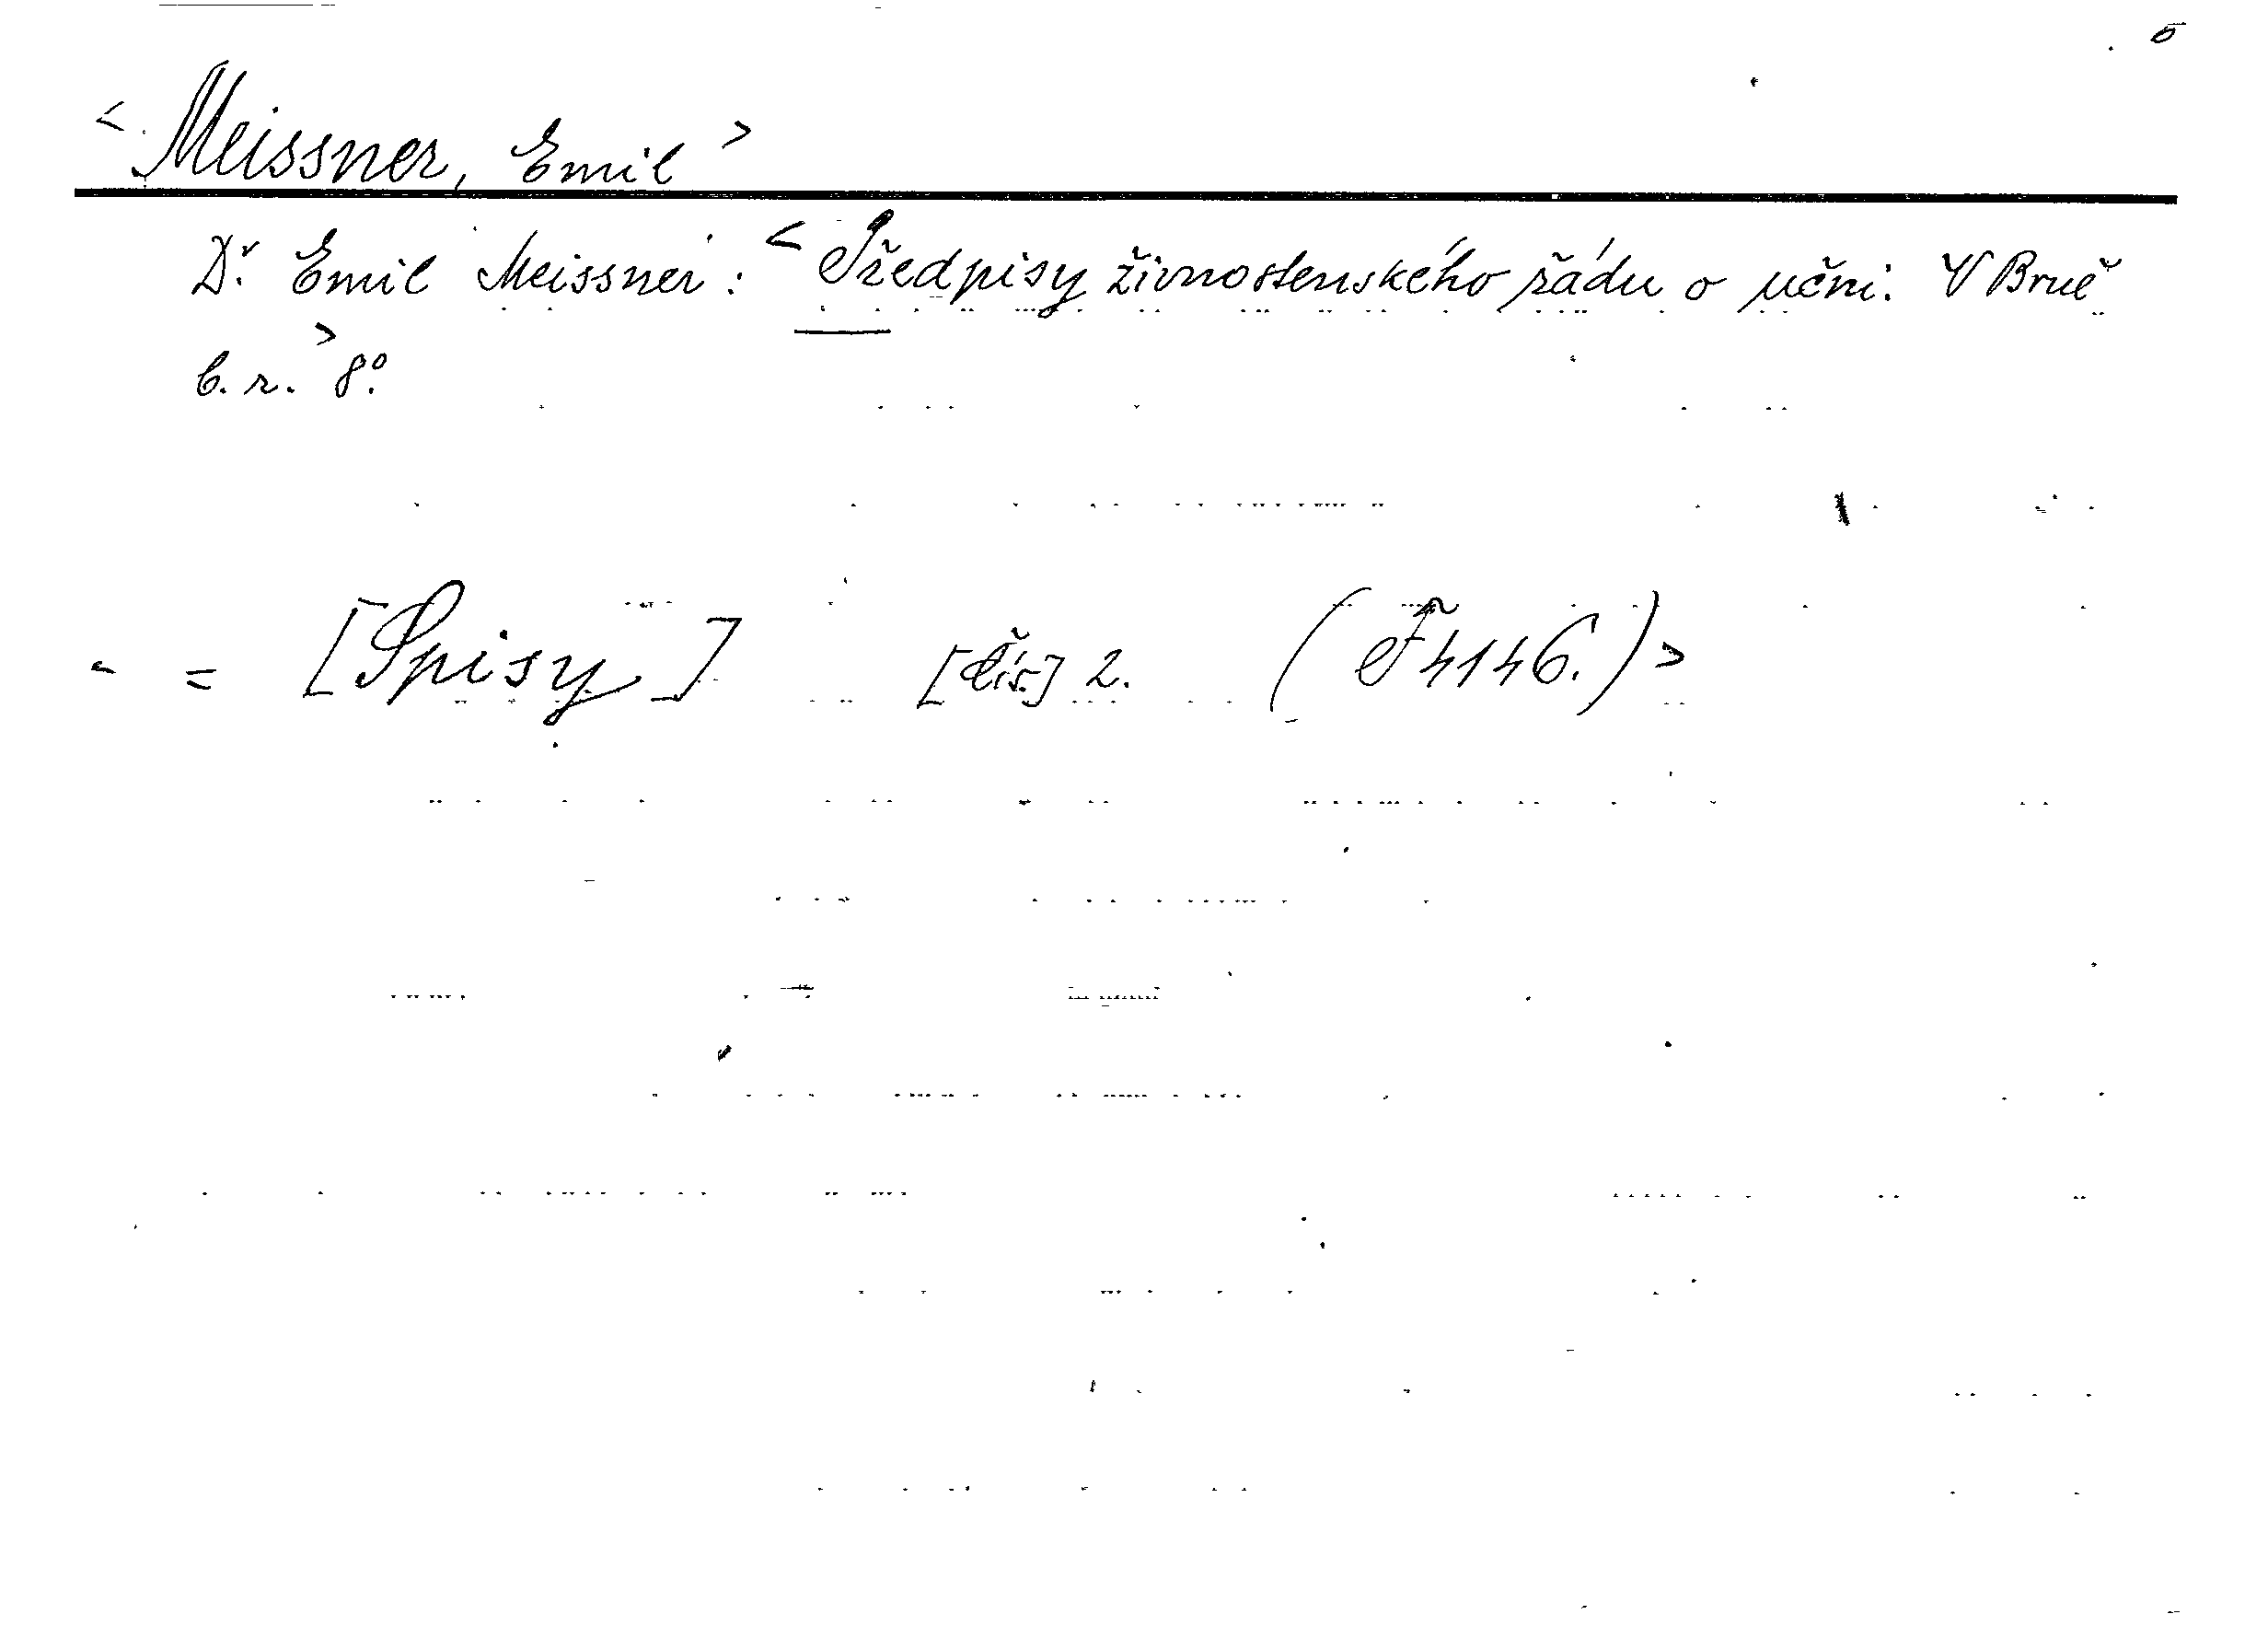 <Meissner, Emil>
Dr. Emil Meissner: <Předpisy živnostenského řádu o učni. V Brně
b. r.> 8°.
= [Spisy] [čís.] 2. (F 4146.)>